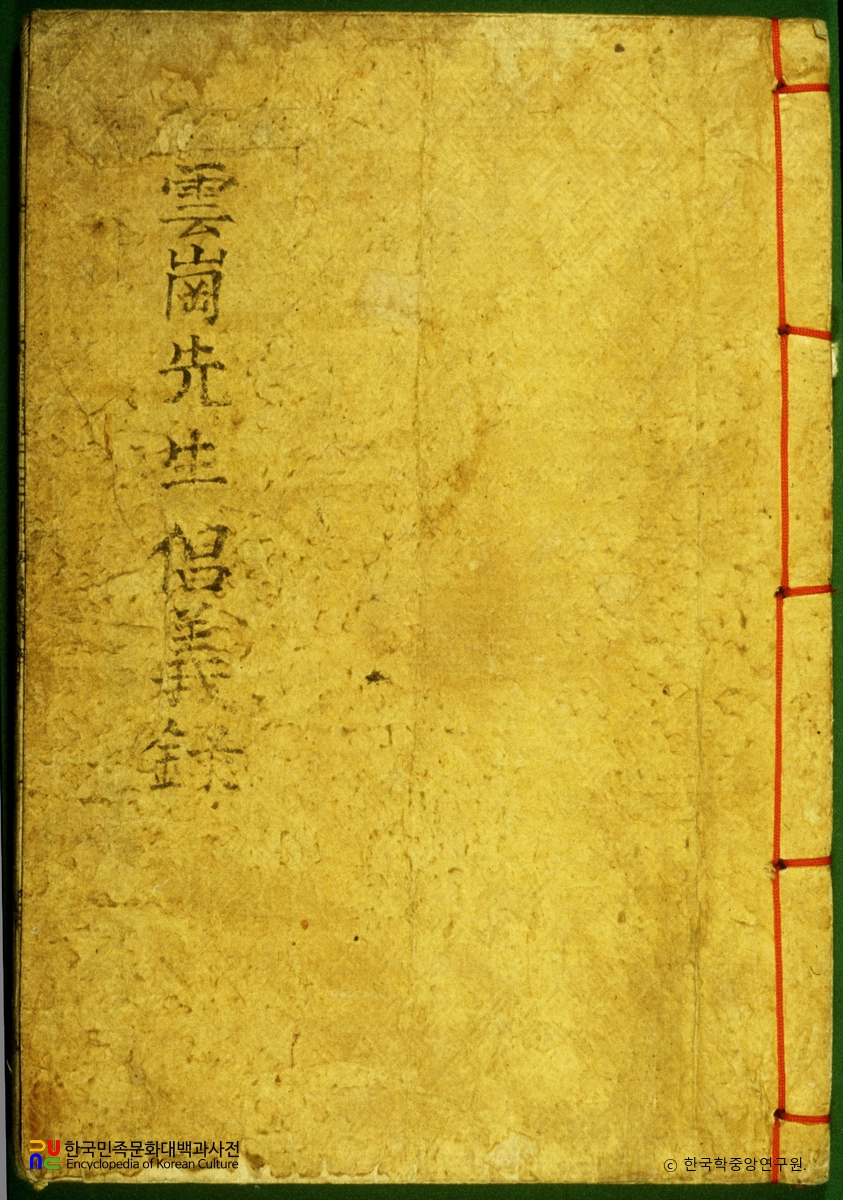 雲崗先生倡義錄
한국민족문화대백과사전
Encyclopedia of Korean Culture
© 한국학중앙연구원